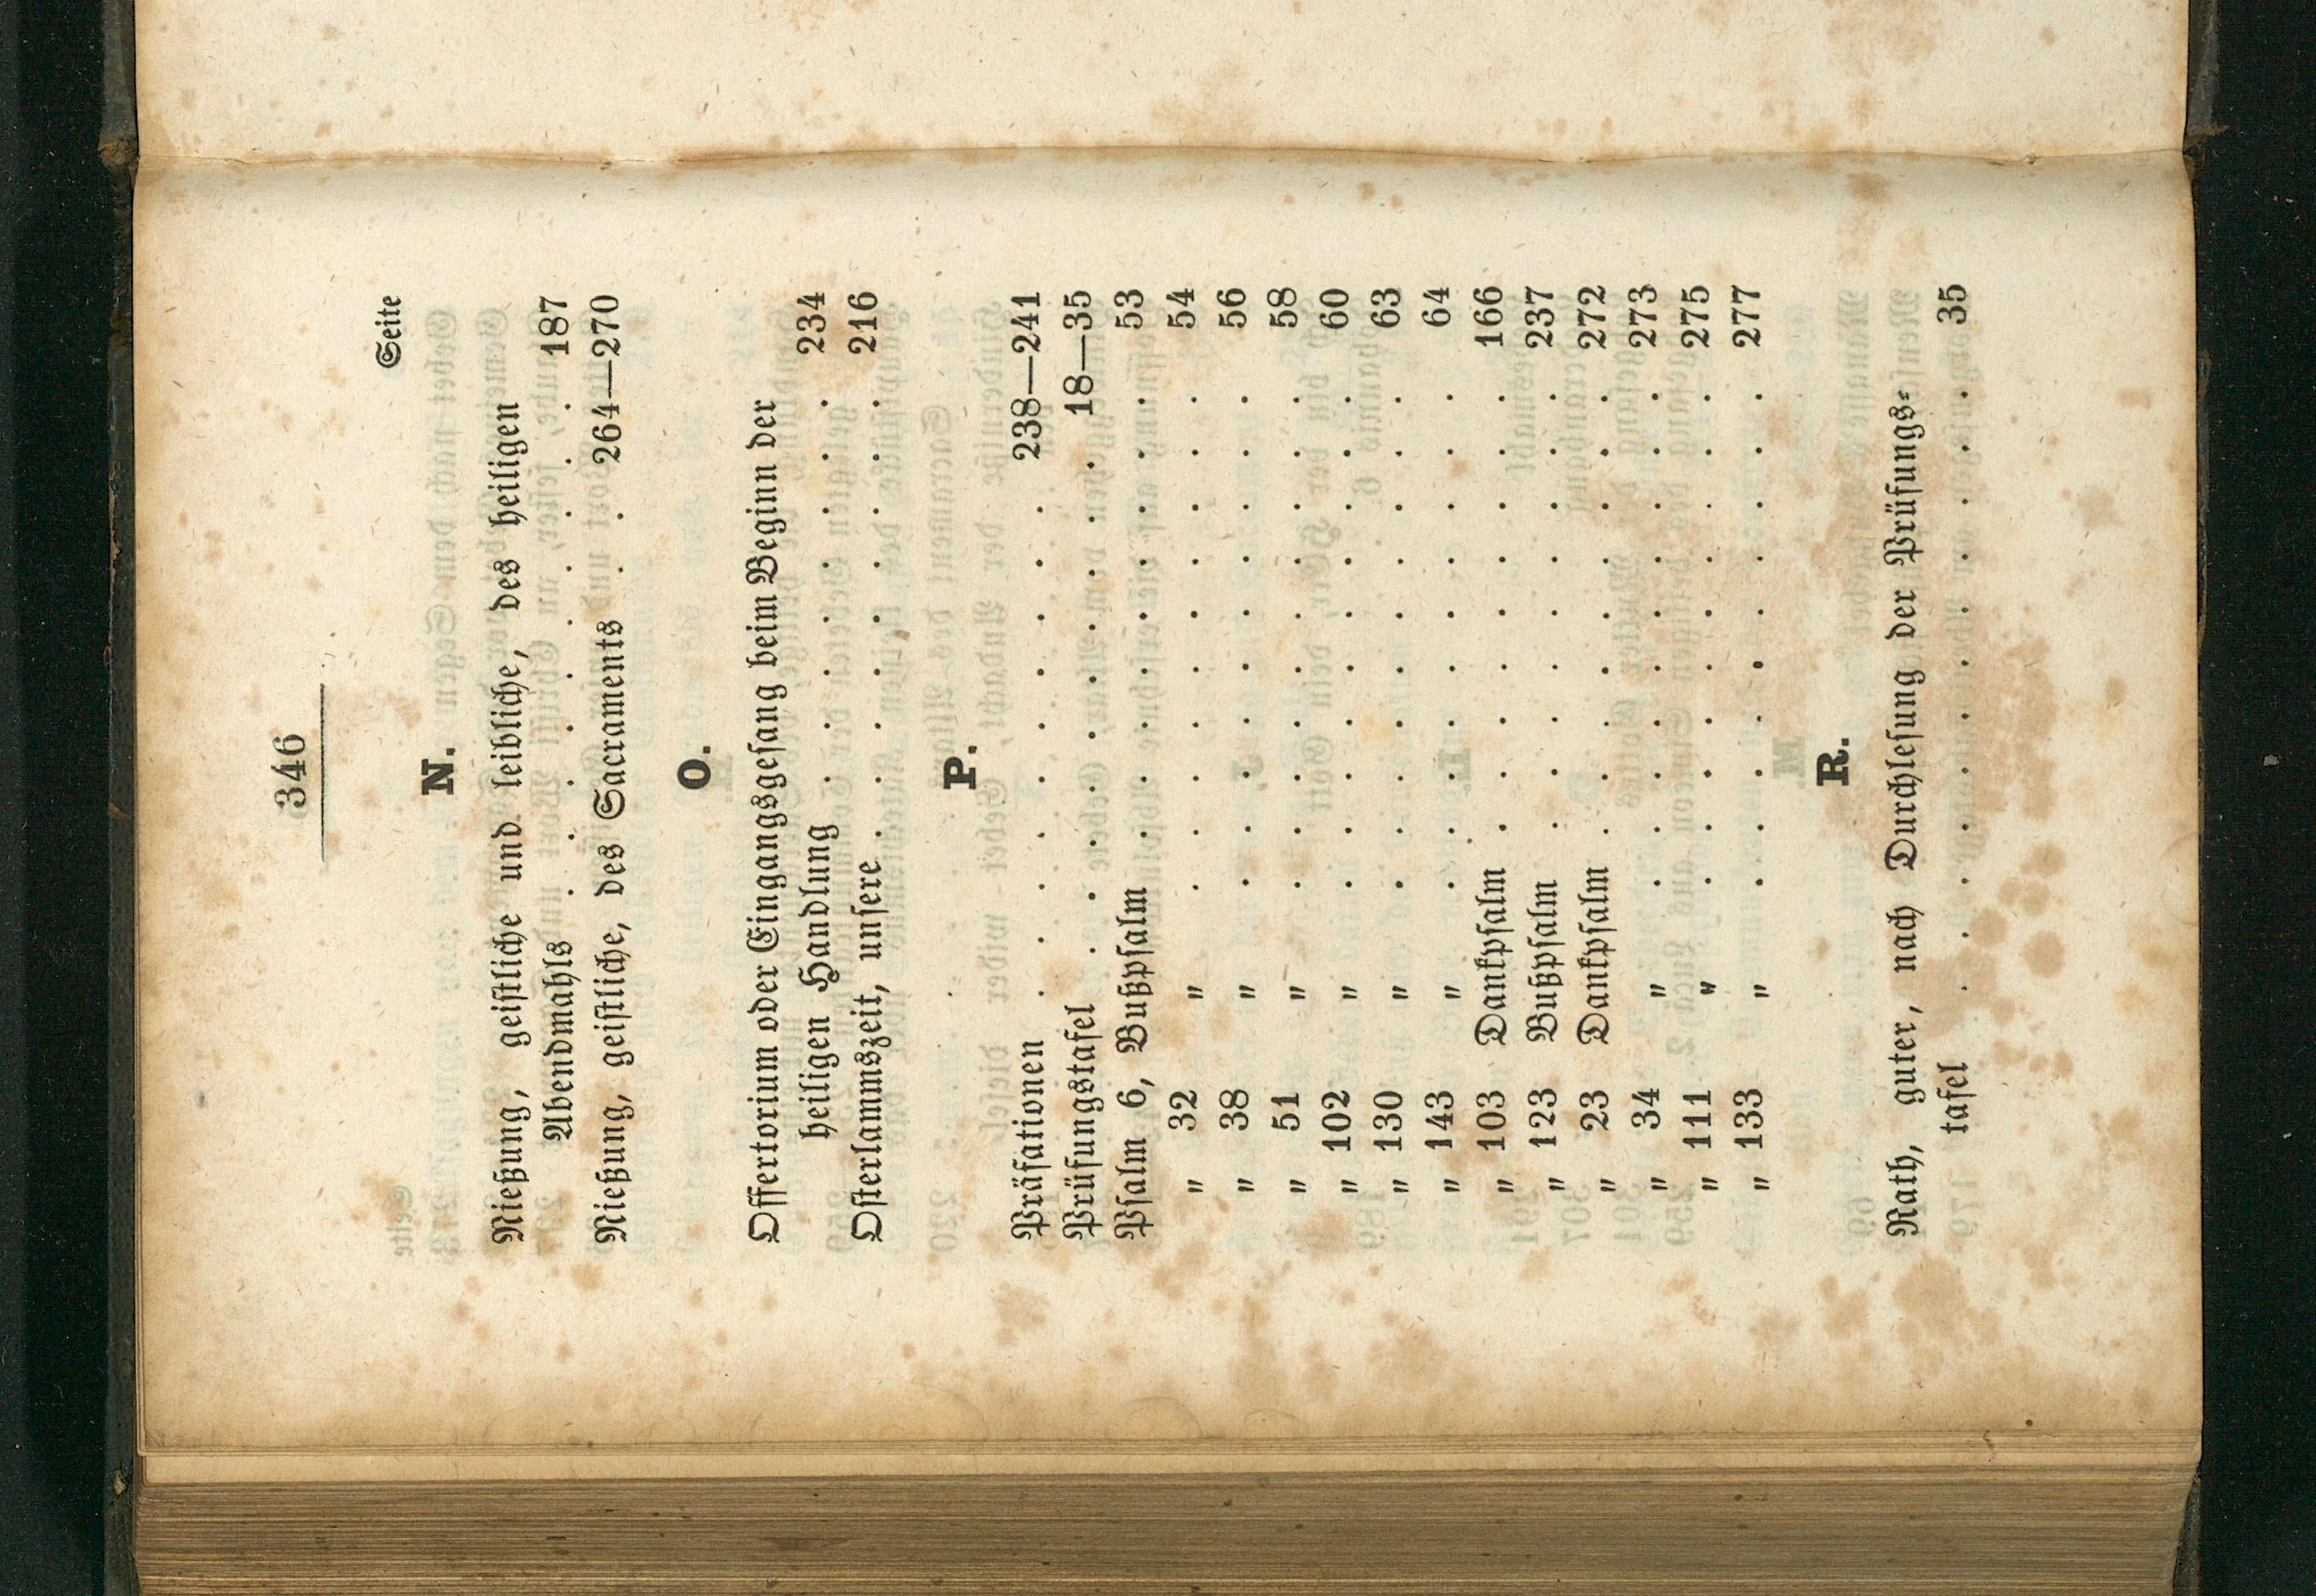 346
Seite
N.
Nießung, geistliche und leibliche, des heiligen
Abendmahls . . . . . . . . . . 187
Nießung, geistliche, des Sacraments . . 264—270
O.
Offertorium oder Eingangsgesang beim Beginn der
heiligen Handlung . . . . . . . . 234
Osterlammszeit, unsere . . . . . . . . . 216
P.
Präfationen . . . . . . . . . . 238—241
Prüfungstafel . . . . . . . . . . 18—35
Psalm 6, Bußpsalm . . . . . . . . . 53
" 32 " . . . . . . . . . . 54
" 38 " . . . . . . . . . . 56
" 51 " . . . . . . . . . . 58
" 102 " . . . . . . . . . . 60
" 130 " . . . . . . . . . . 63
" 143 " . . . . . . . . . . 64
" 103 Dankpsalm . . . . . . . . . . 166
" 123 Bußpsalm . . . . . . . . . 237
" 23 Dankpsalm . . . . . . . . . 272
" 34 " . . . . . . . . . . 273
" 111 " . . . . . . . . . . 275
" 133 " . . . . . . . . . . 277
R.
Rath, guter, nach Durchlesung der Prüfungs-
tafel . . . . . . . . . . . . 35